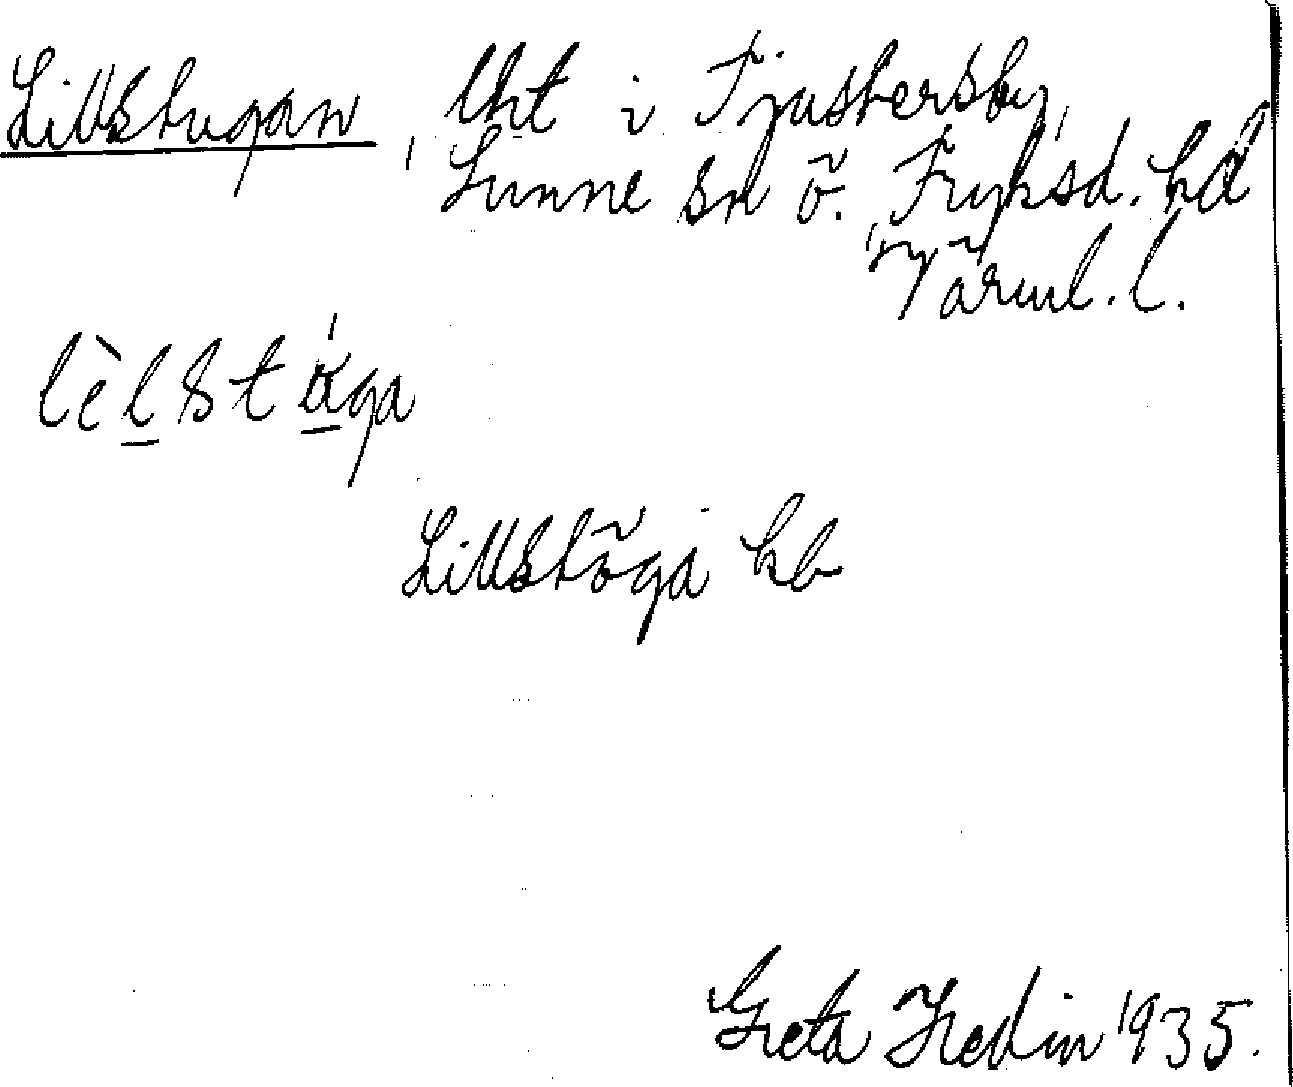 Lillstugan, lht i Tjustersby,
Sunne sn ö. Fryksd. hd
Värml. l.
lèlstöga
Lillstöga kb
Greta Hedin 1935.